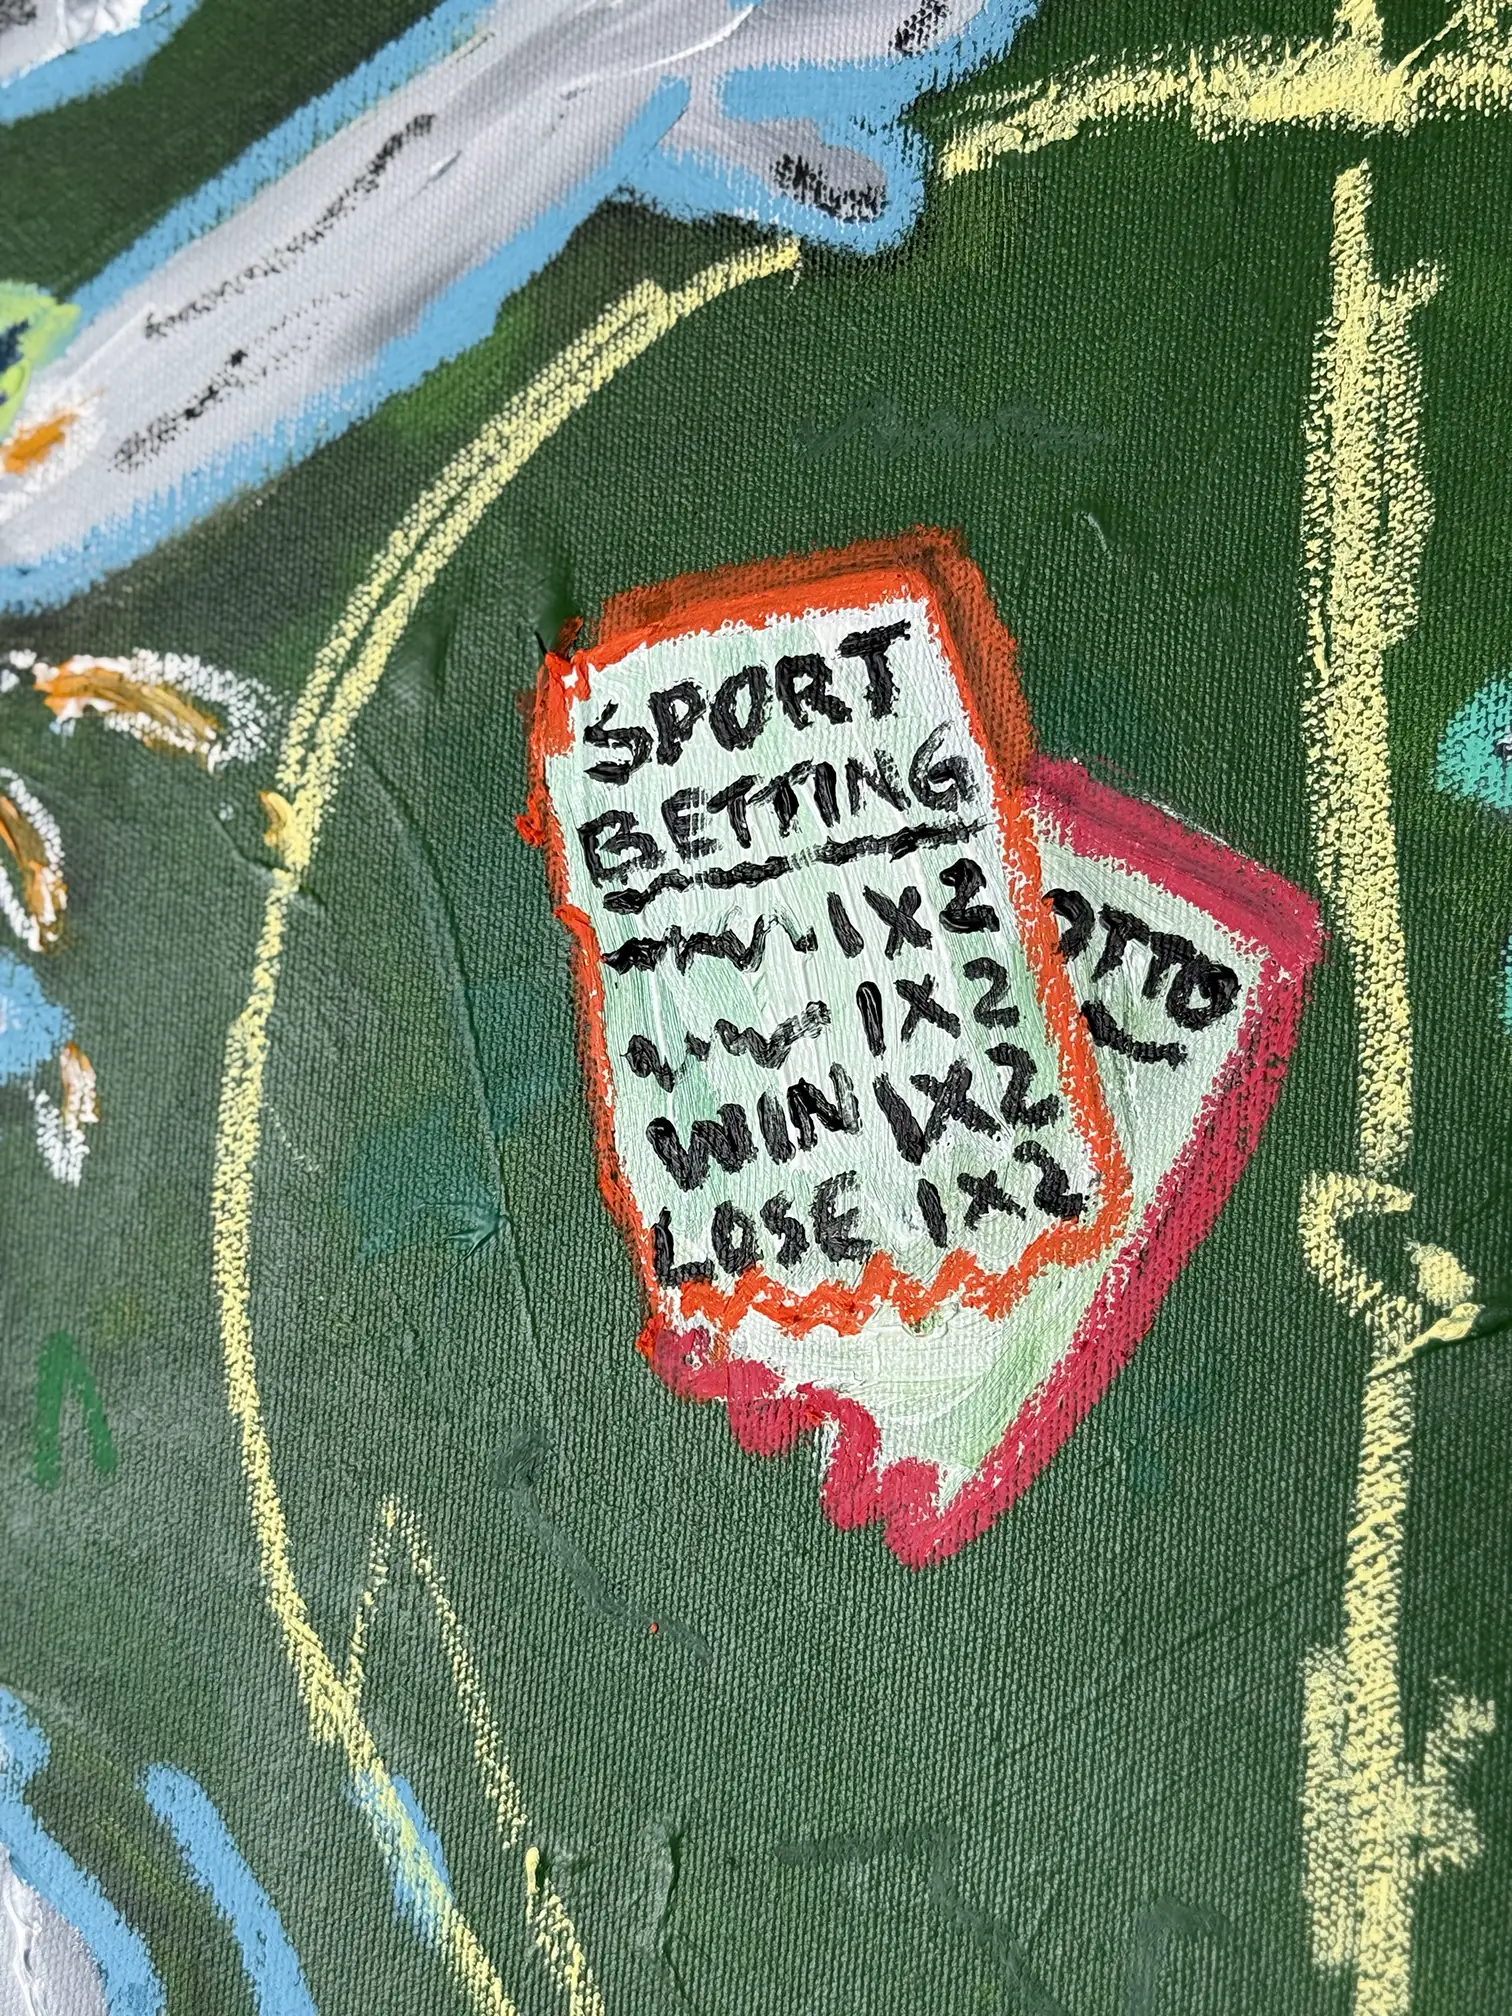 SPORT
BETTING
1X2
1X2
WIN 1X2
LOSE 1X2
OTTO